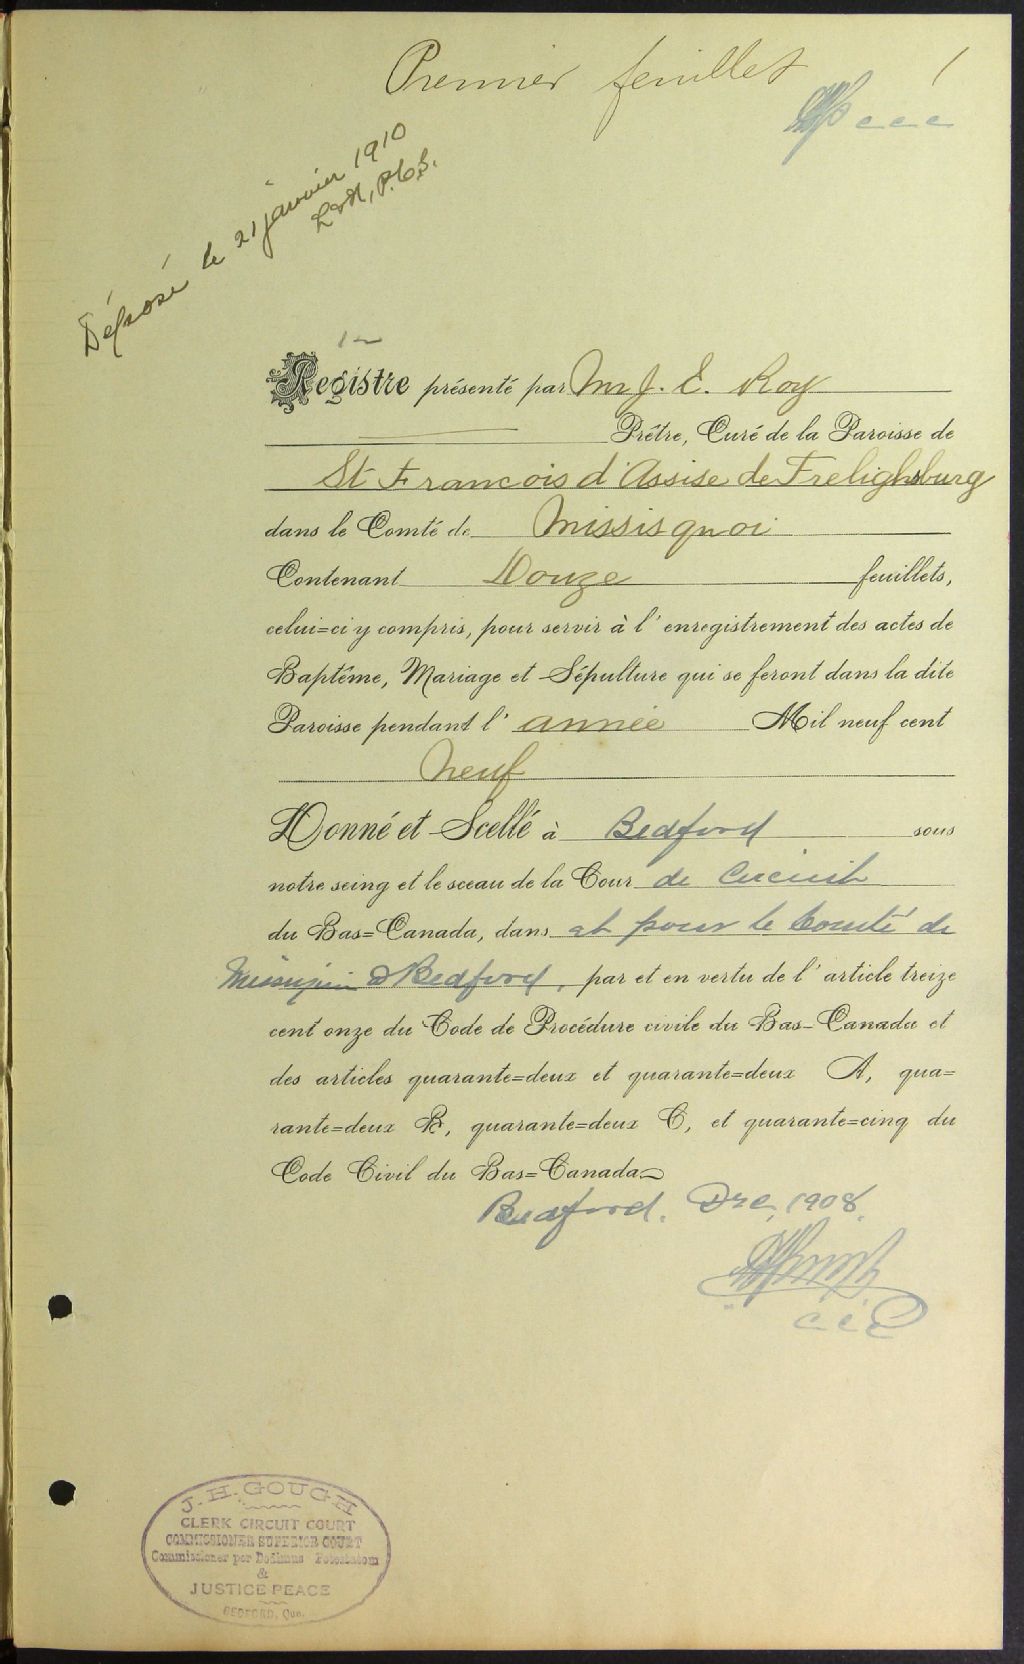 Premier feuillet 1
c c c
Déposé le 21 janvier 1910
P.C.S.
Registre présenté par Mr J. E. Roy
Prêtre, Curé de la Paroisse de
St Francois d'Assise de Frelighsburg
dans le Comté de Missisquoi
Contenant Douze feuillets,
celui=ci y compris, pour servir à l'enregistrement des actes de
Baptême, Mariage et Sépulture qui se feront dans la dite
Paroisse pendant l'année Mil neuf cent
neuf
Donné et Scellé à Bedford sous
notre seing et le sceau de la Cour de Circuit
du Bas=Canada, dans et pour le Comté de
Missisquoi à Bedford, par et en vertu de l'article treize
cent onze du Code de Procédure civile du Bas-Canada et
des articles quarante=deux et quarante=deux A, qua=
rante=deux B, quarante=deux C, et quarante=cinq du
Code Civil du Bas=Canada
Bedford. Dec. 1908.
c.c.c
J. H. GOUGH
CLERK CIRCUIT COURT
COMMISSIONER SUPERIOR COURT
Commissioner per Dedimus Potestatem
&
JUSTICE PEACE
BEDFORD, Que.